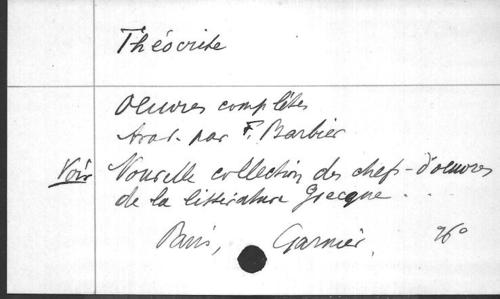 Théocrite
Oeuvres complètes
trad. par F. Barbier
Voir Nouvelle collection des chefs-d'oeuvres
de la littérature grecque . .
Paris, Garnier,